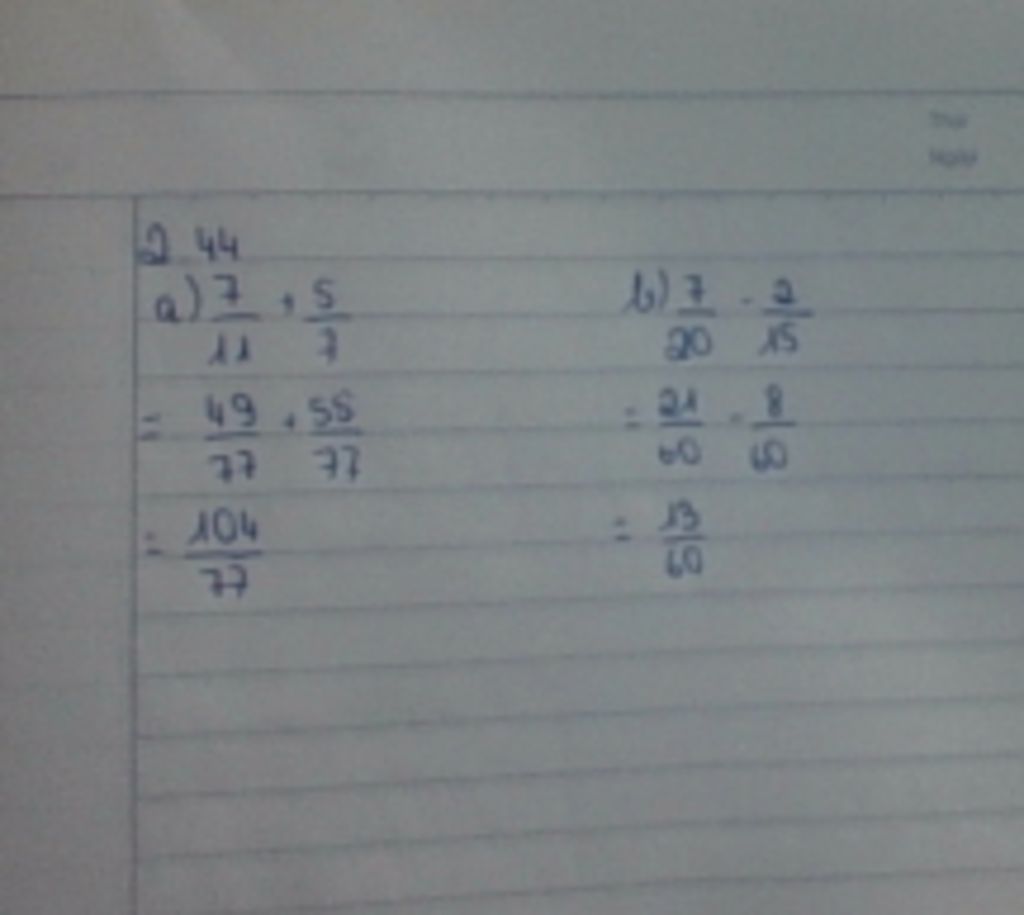 2.44
a) 7/11 + 5/7
= 49/77 + 55/77
= 104/77
b) 7/20 - 2/15
= 21/60 - 8/60
= 13/60